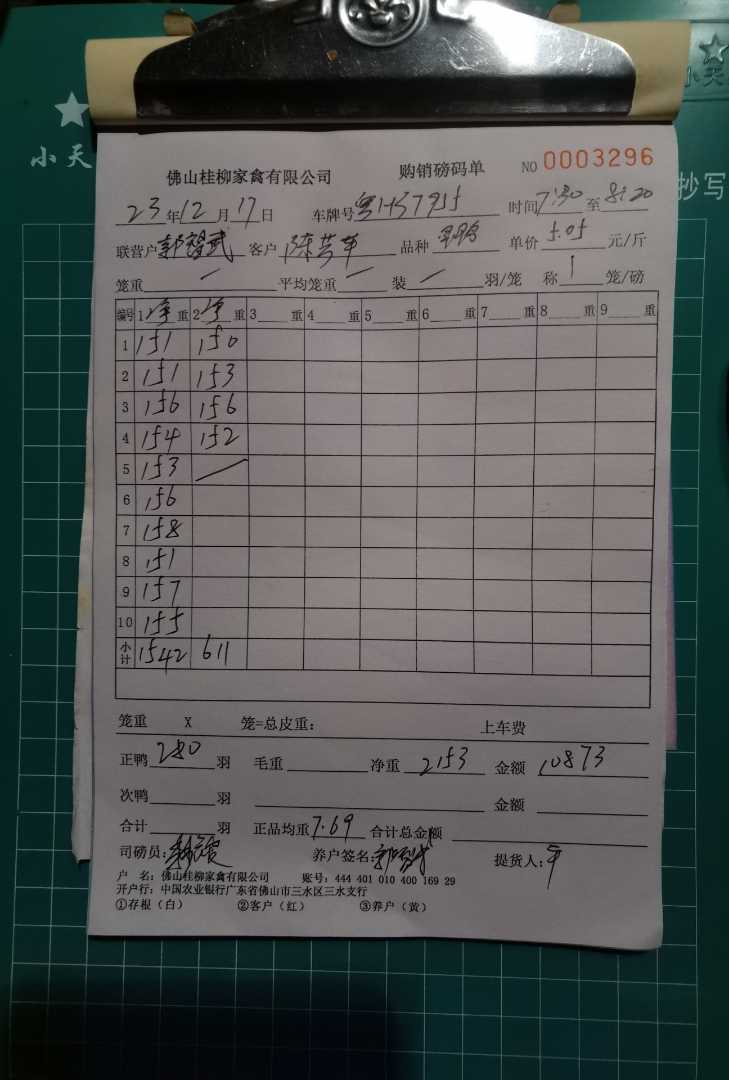 小天
小天
抄写
佛山桂柳家禽有限公司 购销磅码单 NO 0003296
23年12月17日 车牌号 时间7:30至8:20
联营户 客户 品种 单价5.05元/斤
笼重 / 平均笼重 / 装 / 羽/笼 称 1 笼/磅
编号 1净重 2净重 3 重 4 重 5 重 6 重 7 重 8 重 9 重
1 151 150
2 151 153
3 156 156
4 154 152
5 153 /
6 156
7 158
8 151
9 157
10 155
小计 1542 611
笼重 X 笼=总皮重: 上车费
正鸭280羽 毛重 净重2153 金额10873
次鸭 羽 金额
合计 羽 正品均重7.69 合计总金额
司磅员: 养户签名: 提货人:
户 名:佛山桂柳家禽有限公司 账号:444 401 010 400 169 29
开户行:中国农业银行广东省佛山市三水区三水支行
①存根(白) ②客户(红) ③养户(黄)